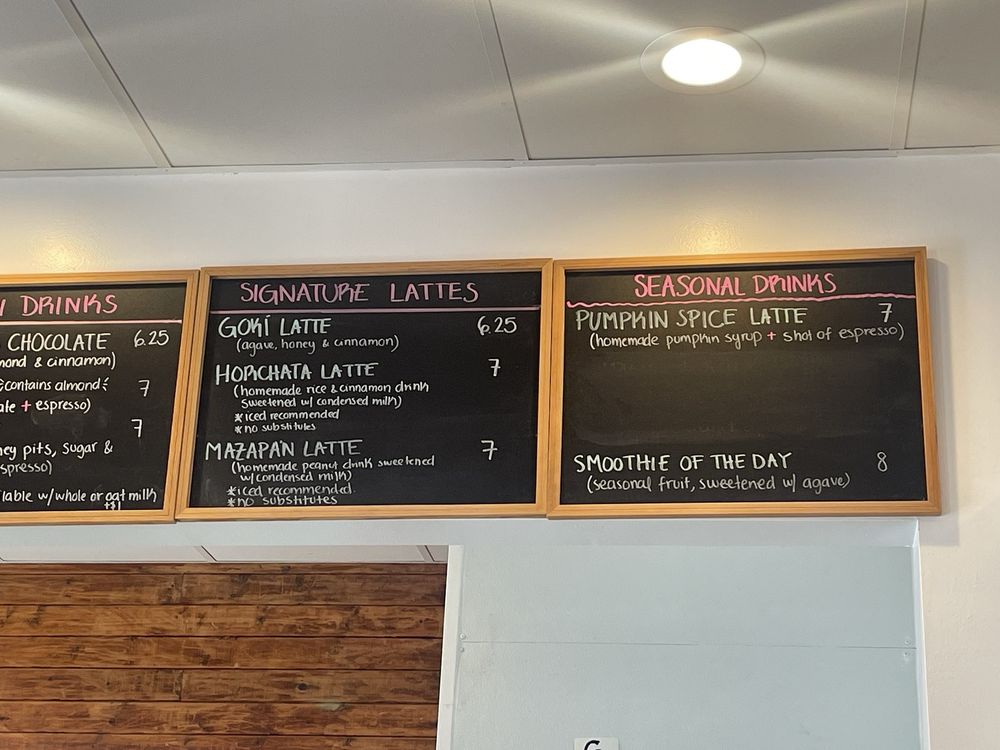 DRINKS
CHOCOLATE 6.25
& cinnamon)
contains almond 7
+ espresso)
7
pits, sugar &
w/whole or oat milk
+$1
SIGNATURE LATTES
GOKÍ LATTE 6.25
(agave, honey & cinnamon)
HORCHATA LATTE 7
(homemade rice & cinnamon drink
sweetened w/ condensed milk)
*iced recommended
*no substitutes
MAZAPÁN LATTE 7
(homemade peanut drink sweetened
w/condensed milk)
*iced recommended
*no substitutes
SEASONAL DRINKS
PUMPKIN SPICE LATTE 7
(homemade pumpkin syrup + shot of espresso)
SMOOTHIE OF THE DAY 8
(seasonal fruit, sweetened w/ agave)